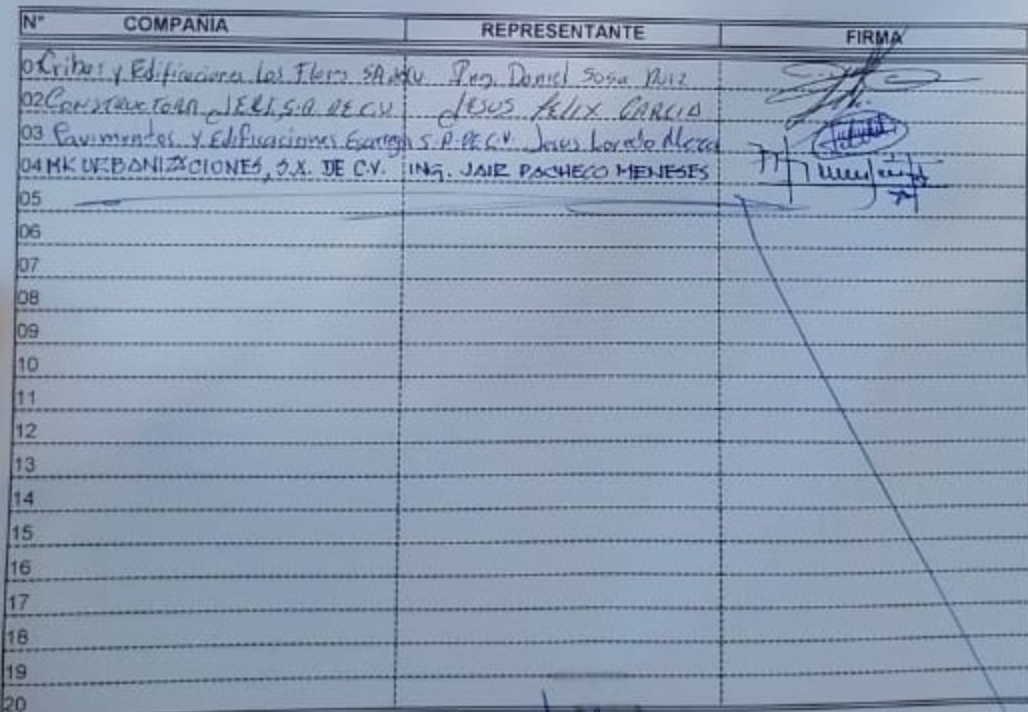 N° COMPAÑIA REPRESENTANTE FIRMA
0 Cribas y Edificaciones Los Flores SA de CV Ing. Daniel Sosa Ruiz
02 CONSTRUCTORA JERI, S.A. DE C.V. JESUS FELIX GARCIA
03 Pavimentos y Edificaciones S.A. DE C.V. Jesus Loredo Meza
04 MK URBANIZACIONES, S.A. DE C.V. ING. JAIR PACHECO MENESES
05
06
07
08
09
10
11
12
13
14
15
16
17
18
19
20